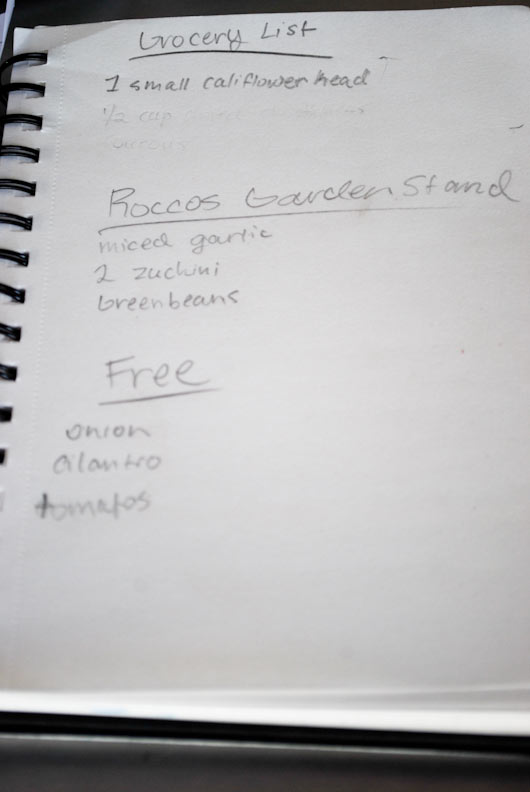 Grocery List
1 small califlower head
1/2 cup
Roccos Garden Stand
miced garlic
2 zuchini
Greenbeans
Free
onion
cilantro
tomatos